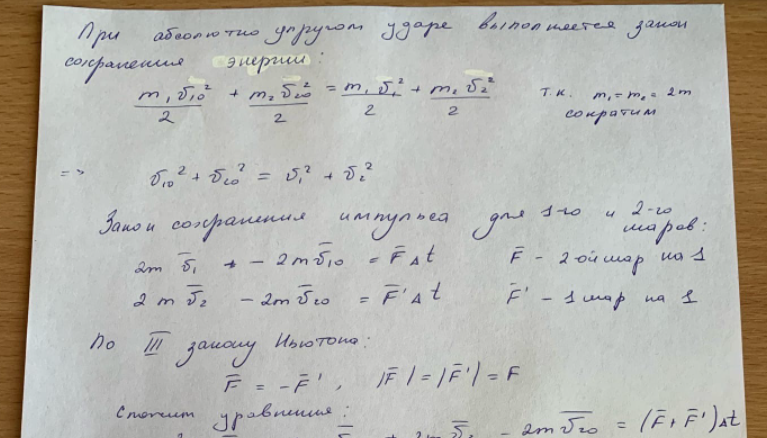 При абсолютно упругом ударе выполняется закон
сохранения энергии:
m₁v̄₁₀²/2 + m₂v̄₂₀²/2 = m₁v̄₁²/2 + m₂v̄₂²/2 т.к. m₁ = m₂ = 2m
сократим
=> v₁₀² + v₂₀² = v₁² + v₂²
Закон сохранения импульса для 1-го и 2-го
шаров:
2m v̄₁ - 2m v̄₁₀ = F̄ Δt F̄ - 2-ой шар на 1
2m v̄₂ - 2m v̄₂₀ = F̄' Δt F̄' - 1 шар на 1
По III закону Ньютона:
F̄ = -F̄', |F̄| = |F̄'| = F
Сложим уравнения:
- 2m v̄₂₀ = (F̄ + F̄')Δt